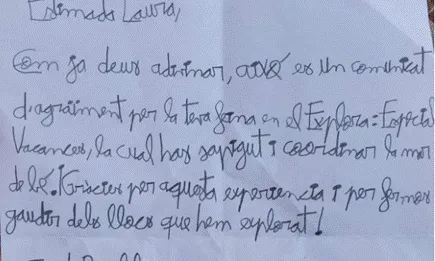 Estimada Laura,
Com ja deus adivinar, això es un comunicat
d'agraiment per la teva feina en el Explora: Especial
Vacances, la cual has sapigut i coordinar la mar
de bé. ¡Gràcies per aquesta experiencia i per fernos
gaudir dels llocs que hem explorat!